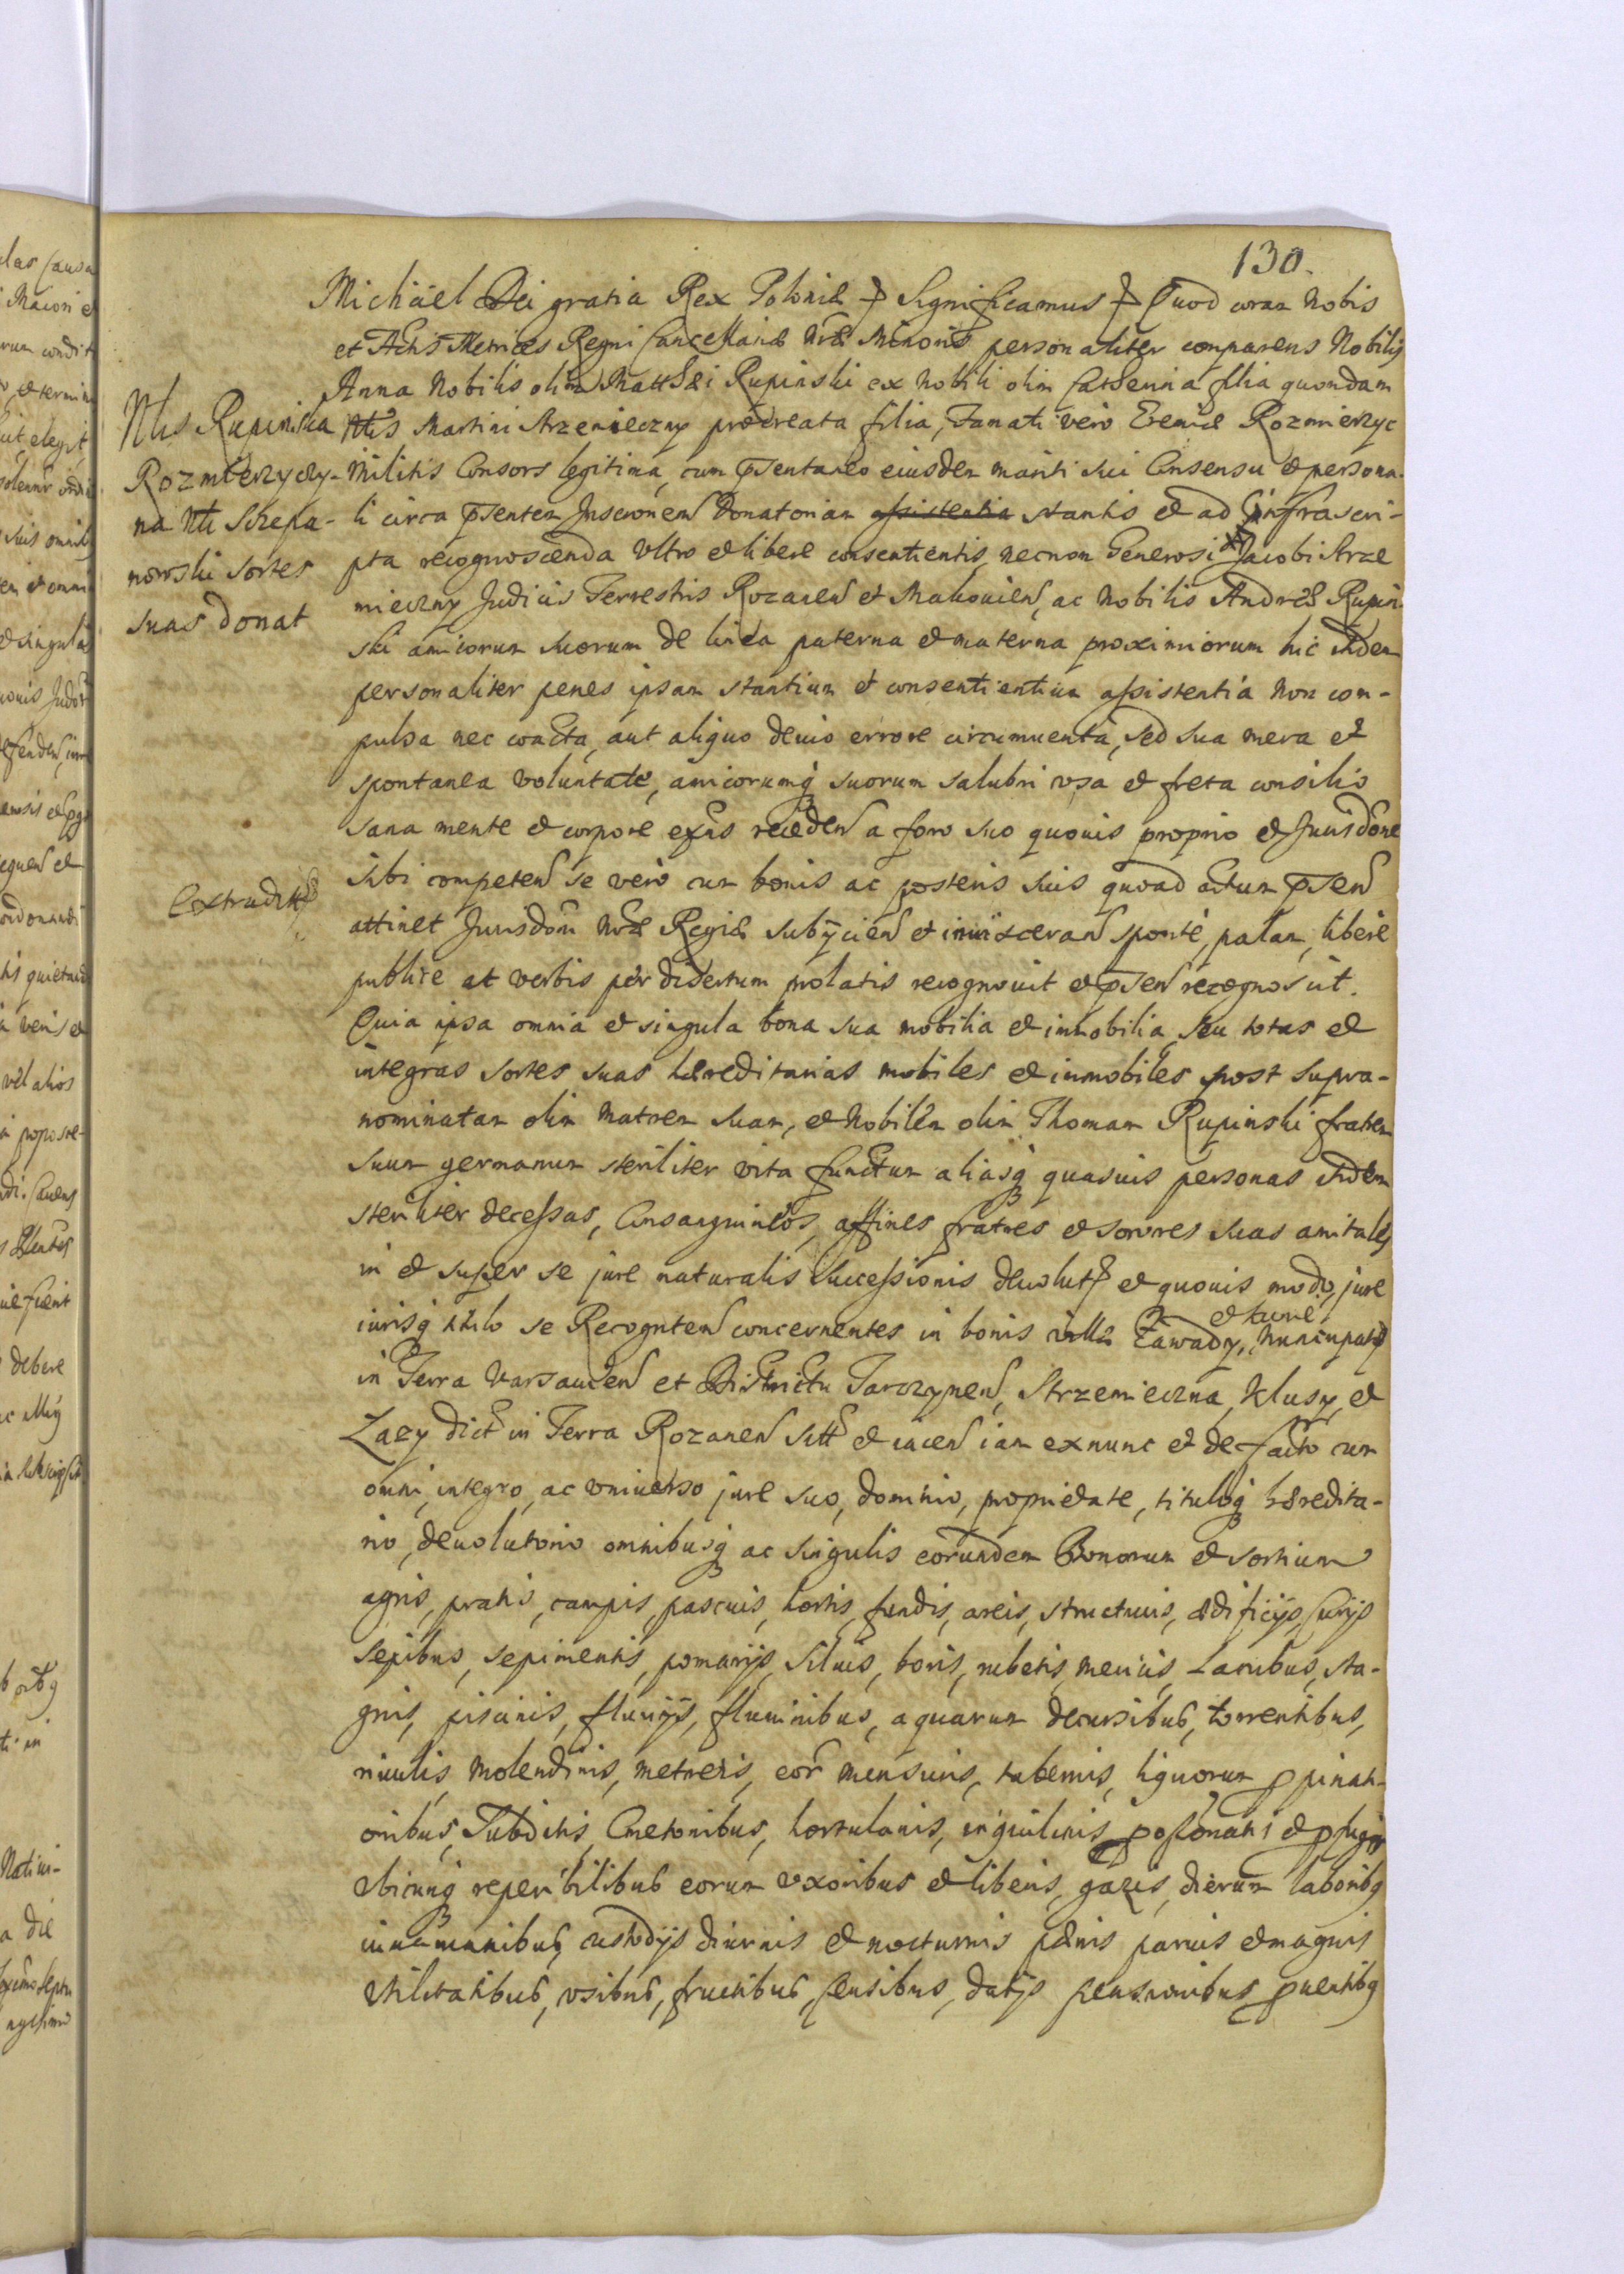 130.
Michäel Dei gratia Rex Poloniæ Significamus Quod coram Nobis
et Actis Metrices Regni Cancellariæ Nræ Minoris personaliter comparens Nobilis
Anna Nobilis olim Matthæi Rupinski ex Nobili olim Catherina filia quondam
Nlis Martini Strzemieczny procreata filia, Famati vero Rozmierzyc
Militis Consors legitima, cum pntaneo eiusdem mariti sui Consensu et persona-
li circa pntem Inscrionem Donatoriam assistentia stantis et ad infrascri-
pta recognoscenda Vltro et libere consentientis, necnon Generosi Jacobi Strze
mieczny Judicis Terrestris Rozanen et Makouien, ac Nobilis Andreæ Rupin
ski amicorum suorum de linea paterna et materna proximiorum hic ibidem
personaliter penes ipsam stantium et consentientium assistentia Non com-
pulsa nec coacta, aut aliquo deuio errore circumuenta, sed sua mera et
spontanea voluntate, amicorumq suorum salubri vsa et freta consilio
sana mente et corpore exns receden a foro suo quouis proprio et Jurisdone
sibi competen se vero cum bonis ac posteris suis quoad actum pnsen
attinet Jurisdoni Nræ Regiæ subijcien et inuisceran sponte, palam, libere
publice at verbis per disertum prolatis recognouit et pnsen recognoscit.
Quia ipsa omnia et singula bona sua mobilia et immobilia seu totas et
integras sortes suas hæreditarias mobiles et immobiles post supra-
nominatam olim Matrem suam, et Nobilem olim Thomam Rupinski fratrem
suum germanum steriliter vita functum aliasq quasuis personas ibidem
steriliter decessas, Consanguineos, affines fratres et sorores suas amitales
in et super se jure naturalis Successionis deuolut et quouis modo, jure
iurisq titulo se Recogniten concernentes in bonis villæ Zawady, Nuncupatis
in Terra Varsauien et Districtu Tarczynen, Strzemieczna, Klusy, et
Zazy dict in Terra Rozanen sitt et iacen iam exnunc et de facto cum
omni, integro, ac vniuerso jure suo, dominio, proprietate, tituloq hæredita-
rio, deuolutorio omnibusq ac singulis eorundem Bonorum et sortium
agris, pratis, campis, pascuis, hortis, fundis, areis, structuris, ædificijs, curijs
sepibus, sepimentis, pomarijs, siluis, boris, rubetis, mericis, Lacubus, sta-
gnis, piscinis, fluuijs, fluminibus, aquarum decursibus, torrentibus,
riuulis, Molendinis, metretis, eor mensuris, tabernis, liquorum ppinati-
onibus, Subditis Cmetonibus, hortulanis, inquilinis,
vbicunq reperibilibus eorum vxoribus et liberis, gazis, dierum laboribq
custodijs diurnis et nocturnis pænis paruis et magnis
vtilitatibus, vsibus, fructibus, censibus, datijs pensionibus puentibq
Nlis Rupinska
Rozmierzyczy-
na Nli Szczepa-
nowski sortes
suas donat
Extradit